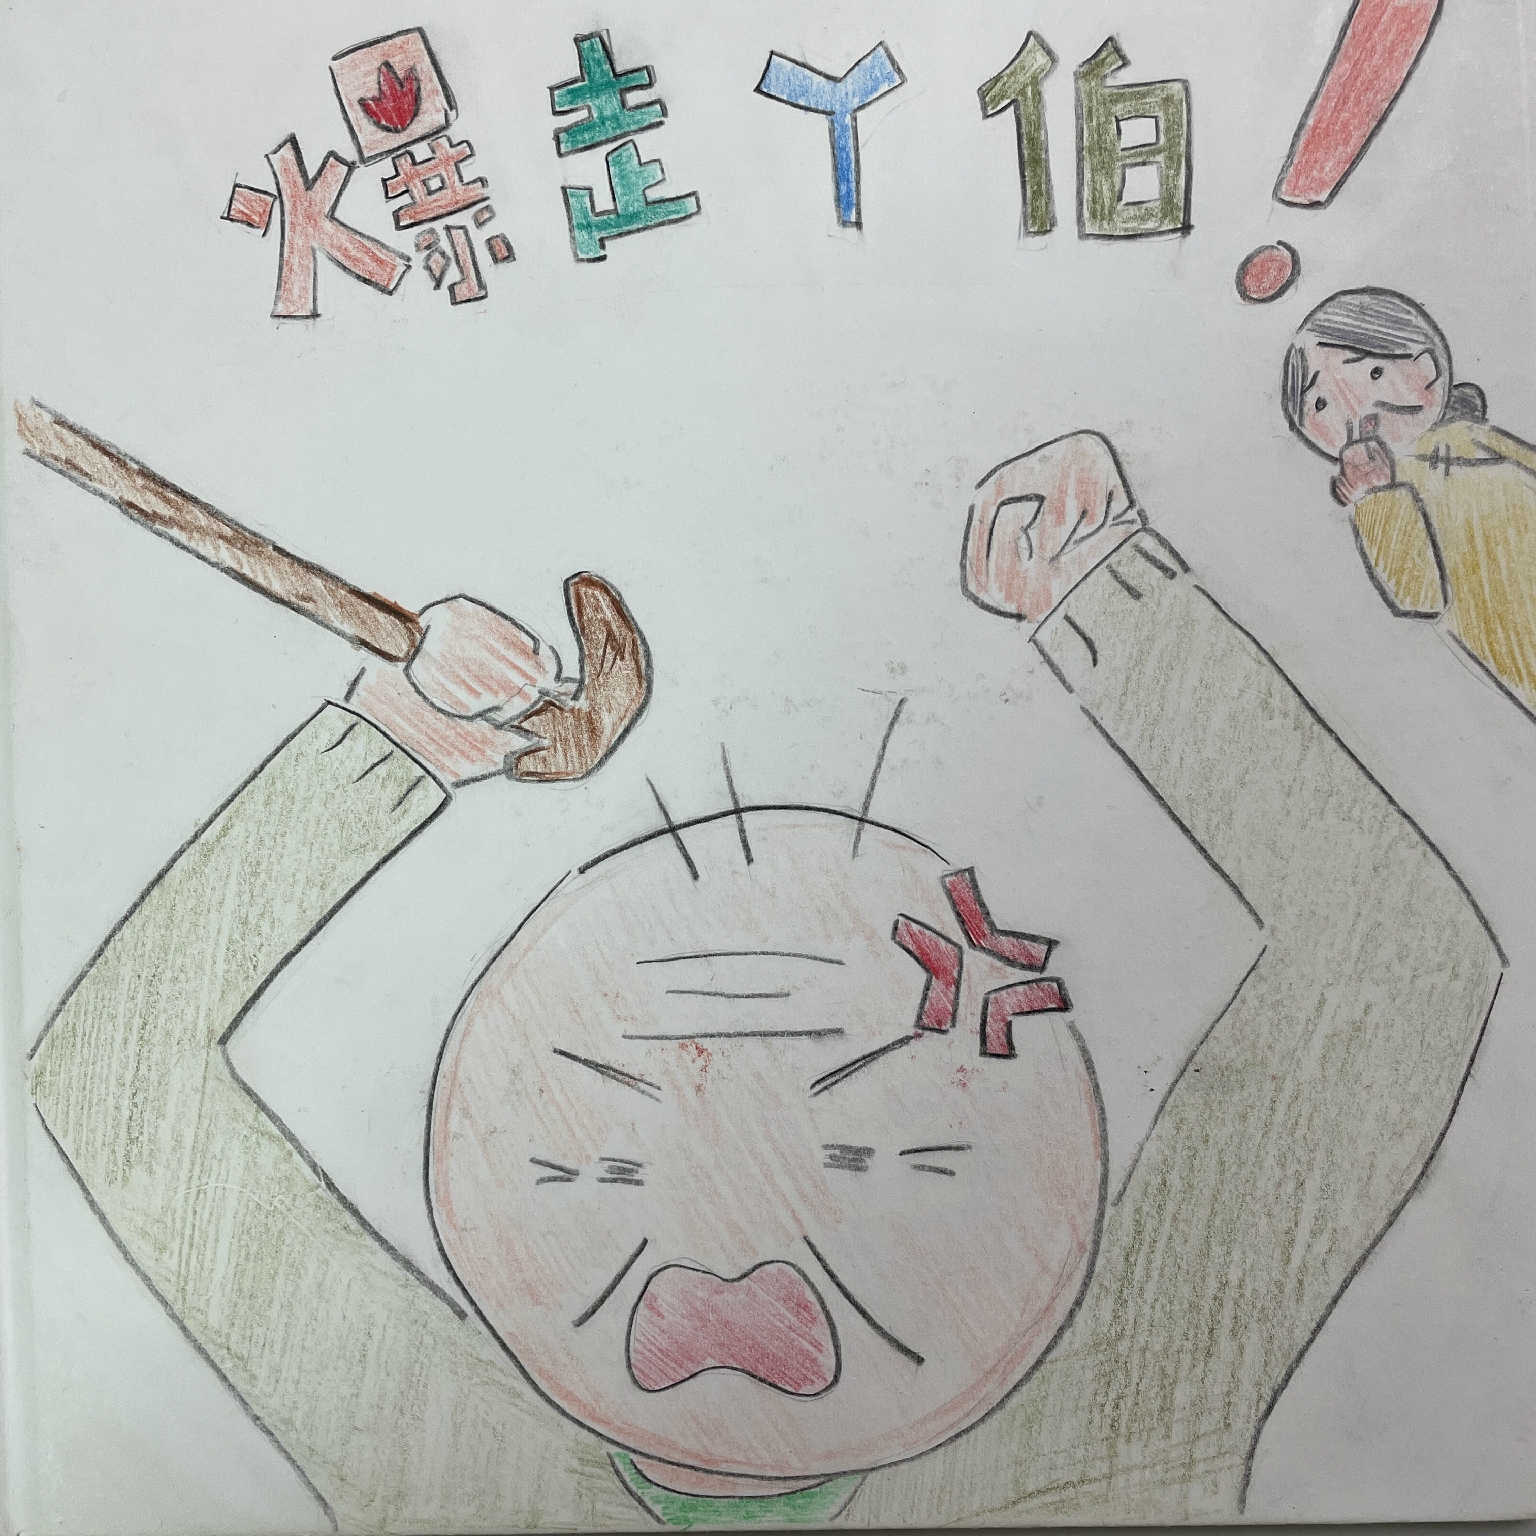 爆走丫伯!